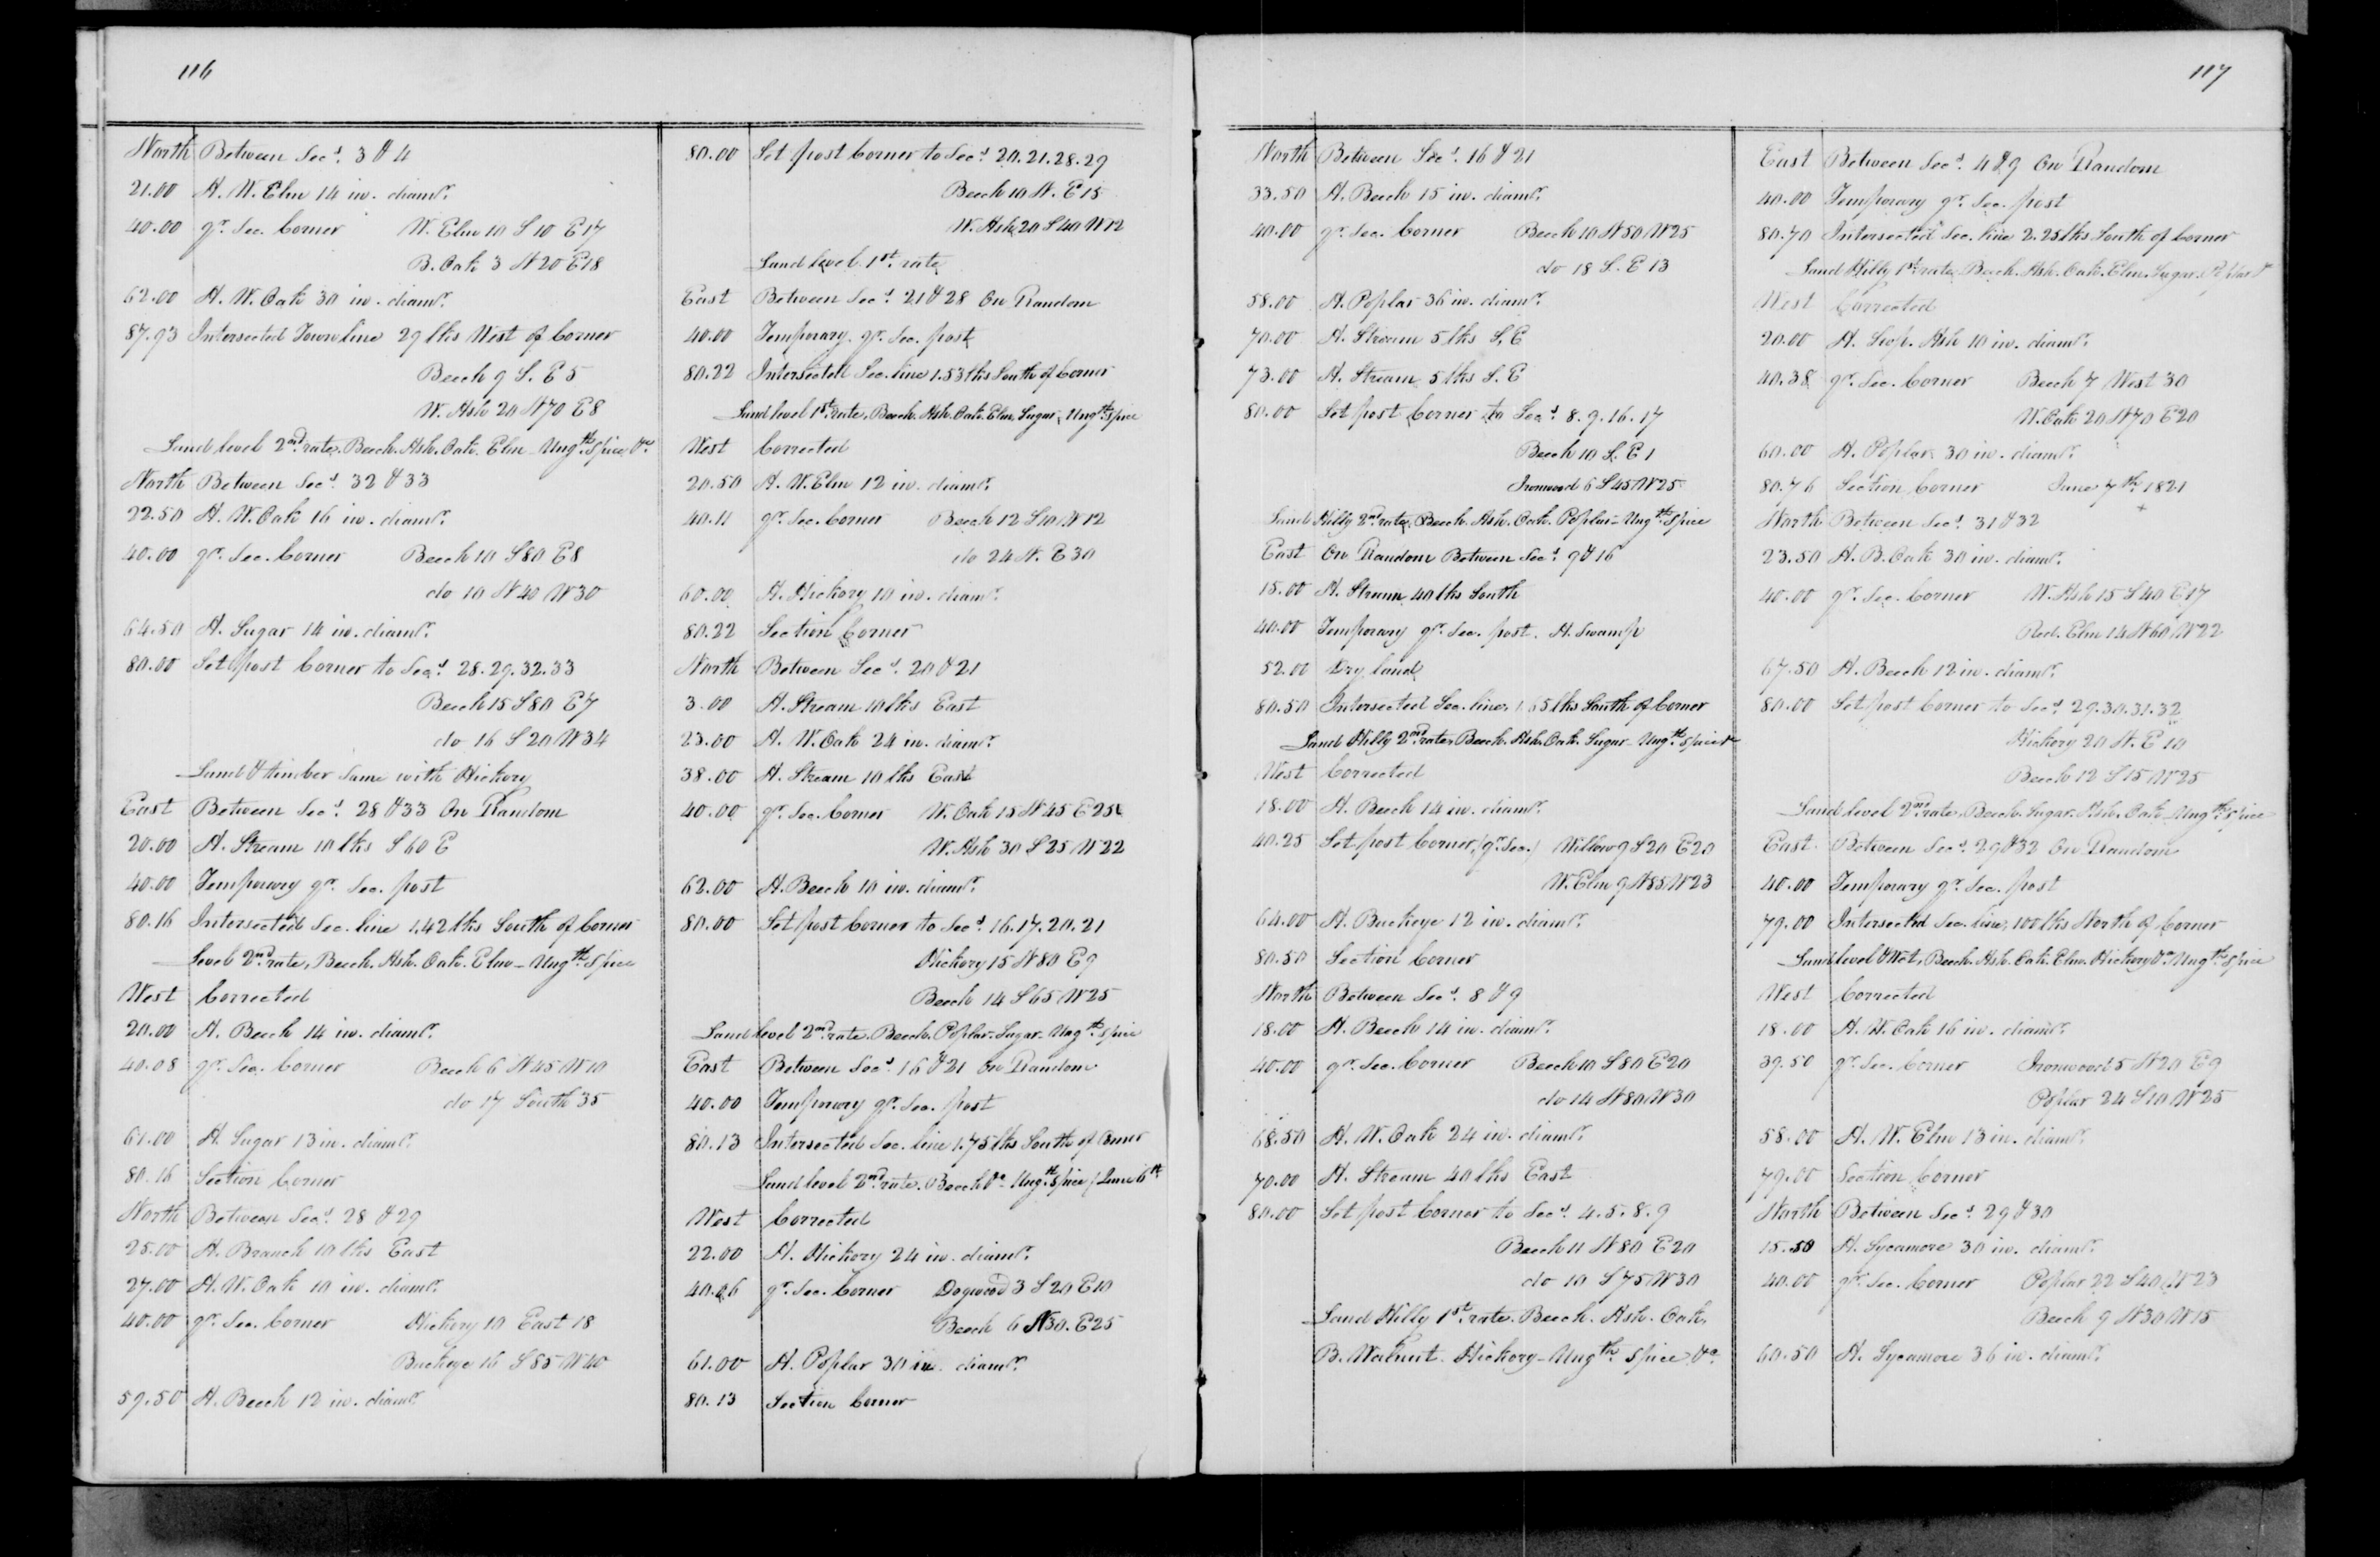 116
North Between Secs. 3 & 4
21.00 A. W. Elm 14 in. diamr.
40.00 qr. Sec. Corner W. Elm 10 S 10 E 17
B. Oak 3 N 20 E 18
62.00 A. W. Oak 30 in. diamr.
87.93 Intersected Town line 29 lks West of Corner
Beech 9 S. E 5
W. Ash 20 N 70 E 8
Land level 2nd rate, Beech. Ash. Oak. Elm - Ungth. Spice &c
North Between Secs. 32 & 33
22.50 A. W. Oak 16 in. diamr.
40.00 qr. Sec. Corner Beech 10 S 80 E 8
do 10 N 40 W 30
64.50 A. Sugar 14 in. diamr.
80.00 Set post Corner to Secs. 28. 29. 32. 33
Beech 15 S 80 E 7
do 16 S 20 W 34
Land & timber Same with Hickory
East Between Secs. 28 & 33 On Random
20.00 A. Stream 10 lks S 60 E
40.00 Temporary qr. Sec. post
80.16 Intersected Sec. line 1.42 lks South of Corner
level 2nd rate, Beech. Ash. Oak. Elm - Ungth. Spice
West Corrected
20.00 A. Beech 14 in. diamr.
40.08 qr. Sec. Corner Beech 6 N 45 W 10
do 17 South 35
61.00 A. Sugar 13 in. diamr.
80.16 Section Corner
North Between Secs. 28 & 29
25.00 A. Branch 10 lks East
27.00 A. W. Oak 10 in. diamr.
40.00 qr. Sec. Corner Hickory 10 East 18
Buckeye 16 S 85 W 40
59.50 A. Beech 12 in. diamr.
80.00 Set post Corner to Secs. 20. 21. 28. 29
Beech 10 N. E 15
W. Ash 20 S 40 W 12
Land level 1st. rate
East Between Secs. 21 & 28 On Random
40.00 Temporary. qr. Sec. post
80.22 Intersected Sec. line 1.53 lks South of Corner
Land level 1st. rate, Beech. Ash. Oak. Elm. Sugar, Ungth. Spice
West Corrected
20.50 A. W. Elm 12 in. diamr.
40.11 qr. Sec. Corner Beech 12 S 10 W 12
do 24 N. E 30
60.00 A. Hickory 10 in. diamr.
80.22 Section Corner
North Between Secs. 20 & 21
3.00 A. Stream 10 lks East
23.00 A. W. Oak 24 in. diamr.
38.00 A. Stream 10 lks East
40.00 qr. Sec. Corner W. Oak 15 N 45 E 25
W. Ash 30 S 25 W 22
62.00 A. Beech 10 in. diamr.
80.00 Set post Corner to Secs. 16. 17. 20. 21
Hickory 15 N 80 E 9
Beech 14 S 65 W 25
Land level 2nd rate. Beech. Poplar - Sugar - Ungth. Spice
East Between Secs. 16 & 21 On Random
40.00 Temporary qr. Sec. post
80.13 Intersected Sec. line 1.75 lks South of Corner
Land level 2nd rate. Beech &c - Ungth. Spice / June 6th
West Corrected
22.00 A. Hickory 24 in. diamr.
40.06 qr. Sec. Corner Dogwood 3 S 20 E 10
Beech 6 N 30. E 25
61.00 A. Poplar 30 in. diamr.
80.13 Section Corner
117
North Between Secs. 16 & 21
33.50 A. Beech 15 in. diamr.
40.00 qr. Sec. Corner Beech 10 N 50 W 25
do 18 S. E 13
58.00 A. Poplar 36 in. diamr.
70.00 A. Stream 5 lks S. E
73.00 A. Stream 5 lks S. E
80.00 Set post Corner to Secs. 8. 9. 16. 17
Beech 10 S. E 1
Ironwood 6 S 45 W 25
Land Hilly 2nd rate, Beech. Ash. Oak. Poplar - Ungth. Spice
East On Random Between Secs. 9 & 16
15.00 A. Stream 40 lks South
40.00 Temporary qr. Sec. post. A. Swamp
52.00 Dry land
80.50 Intersected Sec. line, 1.65 lks South of Corner
Land Hilly 2nd rate, Beech. Ash. Oak. Sugar - Ungth. Spice &c
West Corrected
18.00 A. Beech 14 in. diamr.
40.25 Set post Corner, (qr. Sec.) Willow 9 S 20 E 20
W. Elm 9 N 85 W 23
64.00 A. Buckeye 12 in. diamr.
80.50 Section Corner
North Between Secs. 8 & 9
18.00 A. Beech 14 in. diamr.
40.00 qr. Sec. Corner Beech 10 S 80 E 20
do 14 N 80 W 30
68.50 A. W. Oak 24 in. diamr.
70.00 A. Stream 40 lks East
80.00 Set post Corner to Secs. 4. 5. 8. 9
Beech 11 N 80 E 20
do 10 S 75 W 30
Land Hilly 1st. rate. Beech. Ash. Oak,
B. Walnut. Hickory - Ungth. Spice. &c.
East Between Secs. 4 & 9 On Random
40.00 Temporary qr. Sec. post
80.70 Intersected Sec. line 2.25 lks South of Corner
Land Hilly 1st. rate, Beech. Ash. Oak. Elm. Sugar. Poplar &c
West Corrected
20.00 A. Hop. Ash 10 in. diamr.
40.38 qr. Sec. Corner Beech 7 West 30
W. Oak 20 N 70 E 20
60.00 A. Poplar 30 in. diamr.
80.76 Section Corner June 7th. 1821
North Between Secs. 31 & 32
23.50 A. B. Oak 30 in. diamr.
40.00 qr. Sec. Corner W. Ash 15 S 40 E 17
Red. Elm 14 N 60 W 22
67.50 A. Beech 12 in. diamr.
80.00 Set post Corner to Secs. 29. 30. 31. 32
Hickory 20 N. E 10
Beech 12 S 15 W 25
Land level 2nd rate, Beech. Sugar. Ash. Oak - Ungth. Spice
East Between Secs. 29 & 32 On Random
40.00 Temporary qr. Sec. post
79.00 Intersected Sec. line, 100 lks North of Corner
Land level & Wet, Beech. Ash. Oak. Elm. Hickory &c Ungth. Spice
West Corrected
18.00 A. W. Oak 16 in. diamr.
39.50 qr. Sec. Corner Ironwood 5 N 20 E 9
Poplar 24 S 10 W 25
58.00 A. W. Elm 13 in. diamr.
79.00 Section Corner
North Between Secs. 29 & 30
15.50 A. Sycamore 30 in. diamr.
40.00 qr. Sec. Corner Poplar 22 S 40 W 23
Beech 9 N 30 W 15
60.50 A. Sycamore 36 in. diamr.